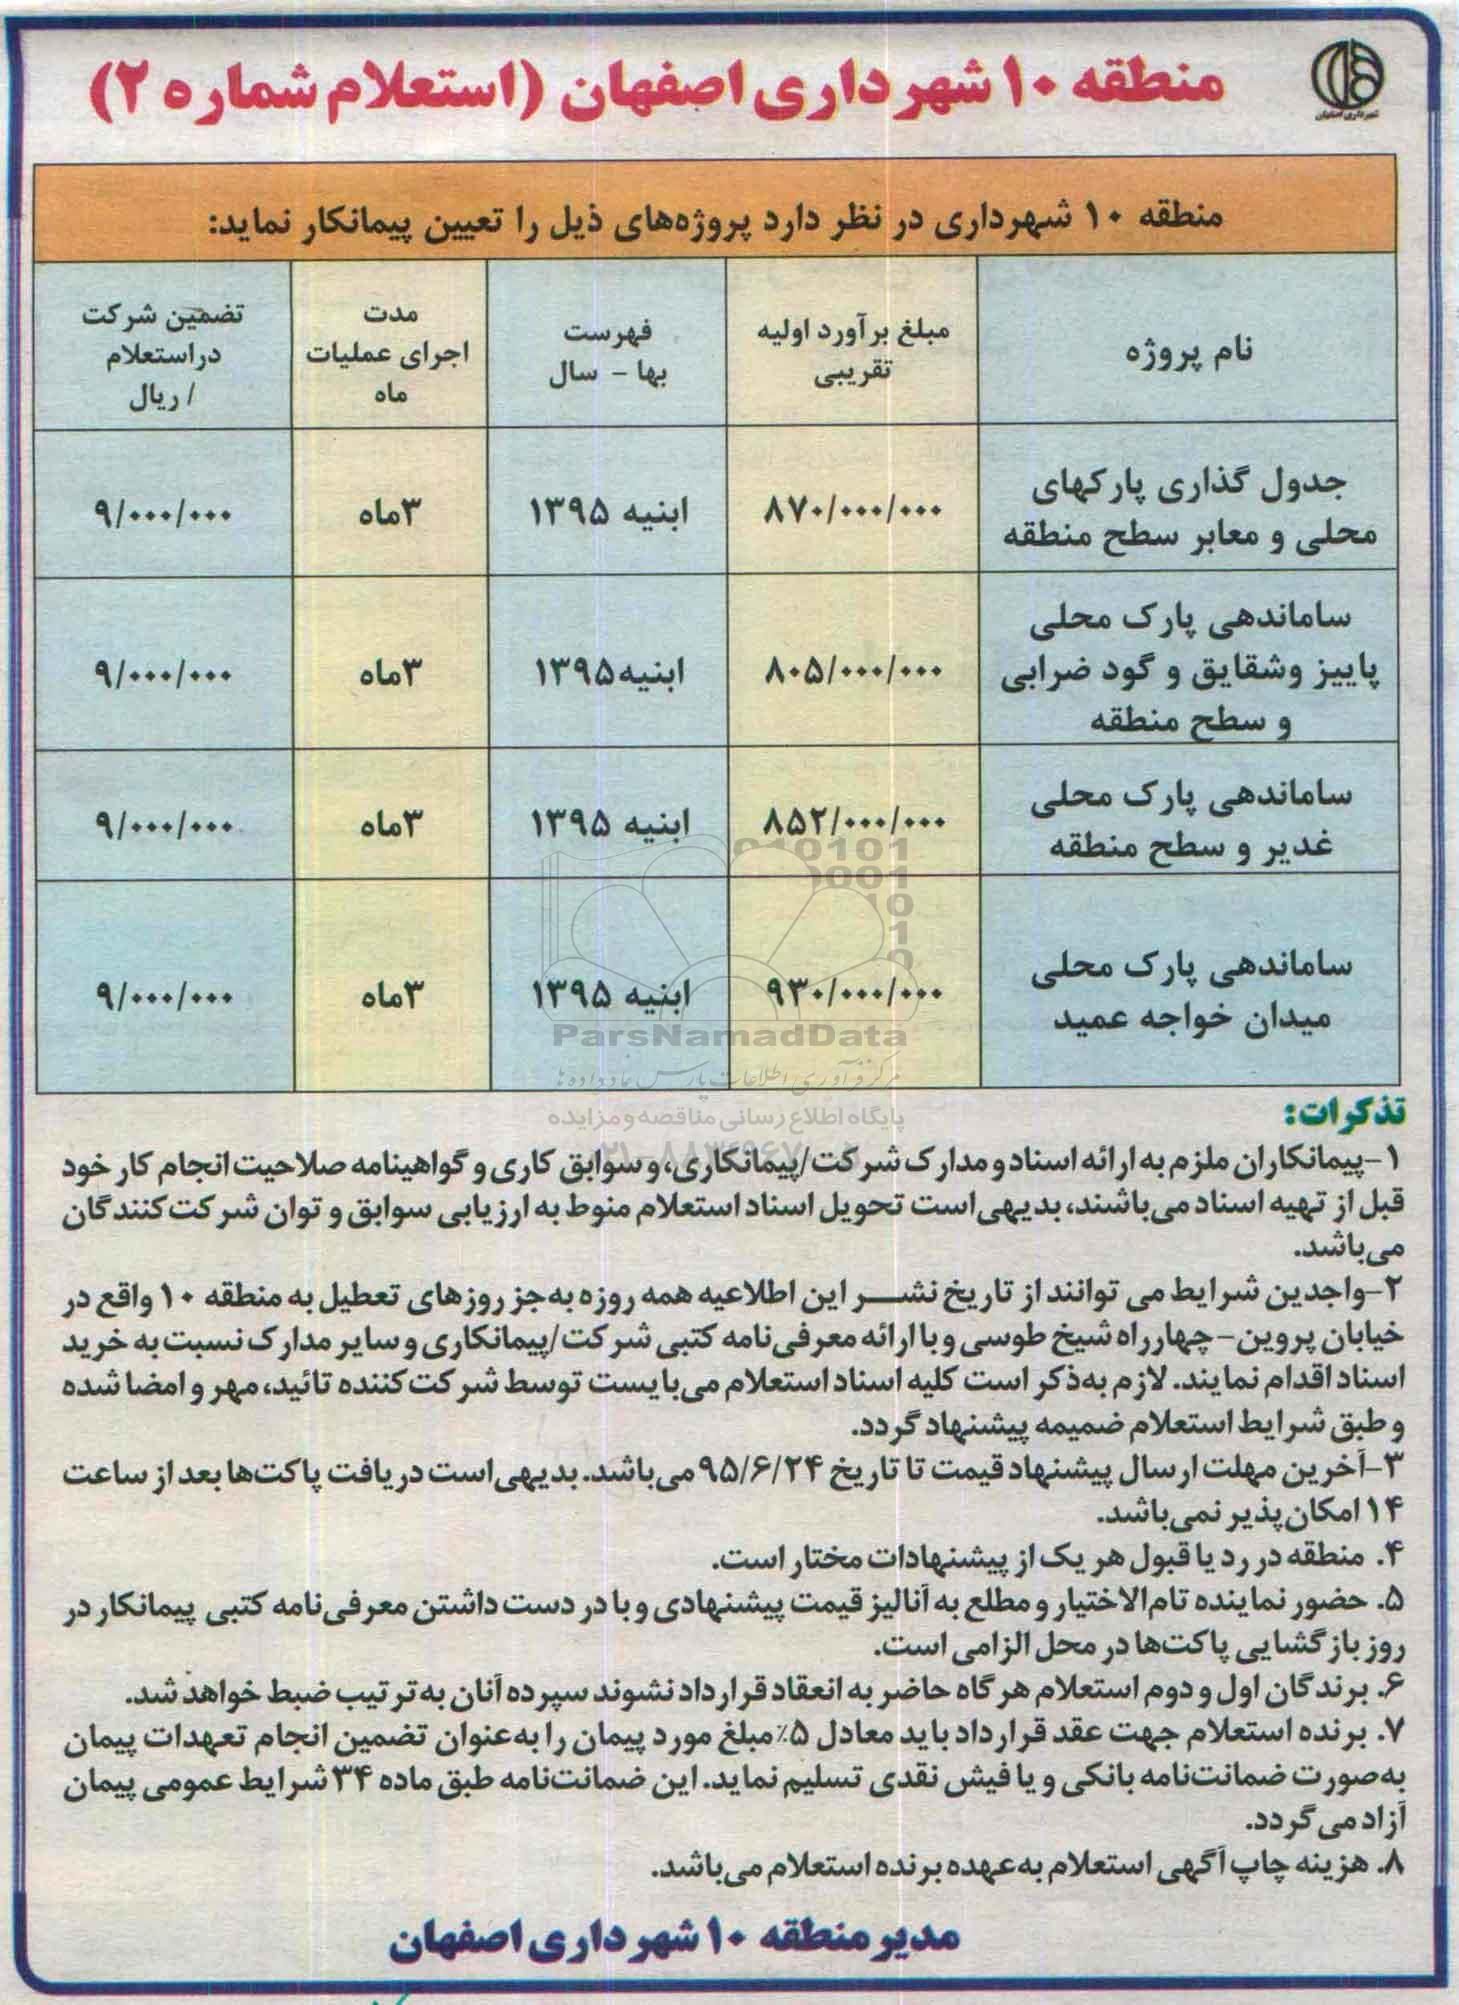 شهرداری اصفهان
منطقه ۱۰ شهرداری اصفهان (استعلام شماره ۲)
منطقه ۱۰ شهرداری در نظر دارد پروژه‌های ذیل را تعیین پیمانکار نماید:
نام پروژه
مبلغ برآورد اولیه
تقریبی
فهرست
بها - سال
مدت
اجرای عملیات
ماه
تضمین شرکت
دراستعلام
/ ریال
جدول گذاری پارکهای
محلی و معابر سطح منطقه
۸۷۰/۰۰۰/۰۰۰
ابنیه ۱۳۹۵
۳ماه
۹/۰۰۰/۰۰۰
ساماندهی پارک محلی
پاییز وشقایق و گود ضرابی
و سطح منطقه
۸۰۵/۰۰۰/۰۰۰
ابنیه۱۳۹۵
۳ماه
۹/۰۰۰/۰۰۰
ساماندهی پارک محلی
غدیر و سطح منطقه
۸۵۲/۰۰۰/۰۰۰
ابنیه ۱۳۹۵
۳ماه
۹/۰۰۰/۰۰۰
ساماندهی پارک محلی
میدان خواجه عمید
۹۳۰/۰۰۰/۰۰۰
ابنیه ۱۳۹۵
۳ماه
۹/۰۰۰/۰۰۰
ParsNamadData
مرکز فرآوری اطلاعات پارس نماد داده ها
پایگاه اطلاع رسانی مناقصه و مزایده
تذکرات:
۱-پیمانکاران ملزم به ارائه اسناد و مدارک شرکت/پیمانکاری، و سوابق کاری و گواهینامه صلاحیت انجام کار خود
قبل از تهیه اسناد می‌باشند، بدیهی‌است تحویل اسناد استعلام منوط به ارزیابی سوابق و توان شرکت‌کنندگان
می‌باشد.
۲-واجدین شرایط می توانند از تاریخ نشـــر این اطلاعیه همه روزه به‌جز روزهای تعطیل به منطقه ۱۰ واقع در
خیابان پروین- چهارراه شیخ طوسی و با ارائه معرفی‌نامه کتبی شرکت/پیمانکاری و سایر مدارک نسبت به خرید
اسناد اقدام نمایند. لازم به‌ذکر است کلیه اسناد استعلام می‌بایست توسط شرکت‌کننده تائید، مهر و امضا شده
و طبق شرایط استعلام ضمیمه پیشنهاد گردد.
۳-آخرین مهلت ارسال پیشنهاد قیمت تا تاریخ ۹۵/۶/۲۴ می‌باشد. بدیهی‌است دریافت پاکت‌ها بعد از ساعت
۱۴ امکان‌پذیر نمی‌باشد.
۴. منطقه در رد یا قبول هر یک از پیشنهادات مختار است.
۵. حضور نماینده تام‌الاختیار و مطلع به آنالیز قیمت پیشنهادی و با در دست داشتن معرفی‌نامه کتبی پیمانکار در
روز بازگشایی پاکت‌ها در محل الزامی است.
۶. برندگان اول و دوم استعلام هرگاه حاضر به انعقاد قرارداد نشوند سپرده آنان به‌ترتیب ضبط خواهد شد.
۷. برنده استعلام جهت عقد قرارداد باید معادل ۵٪ مبلغ مورد پیمان را به‌عنوان تضمین انجام تعهدات پیمان
به‌صورت ضمانت‌نامه بانکی و یا فیش نقدی تسلیم نماید. این ضمانت‌نامه طبق ماده ۳۴ شرایط عمومی پیمان
آزاد می‌گردد.
۸. هزینه چاپ آگهی استعلام به‌عهده برنده استعلام می‌باشد.
مدیر منطقه ۱۰ شهرداری اصفهان